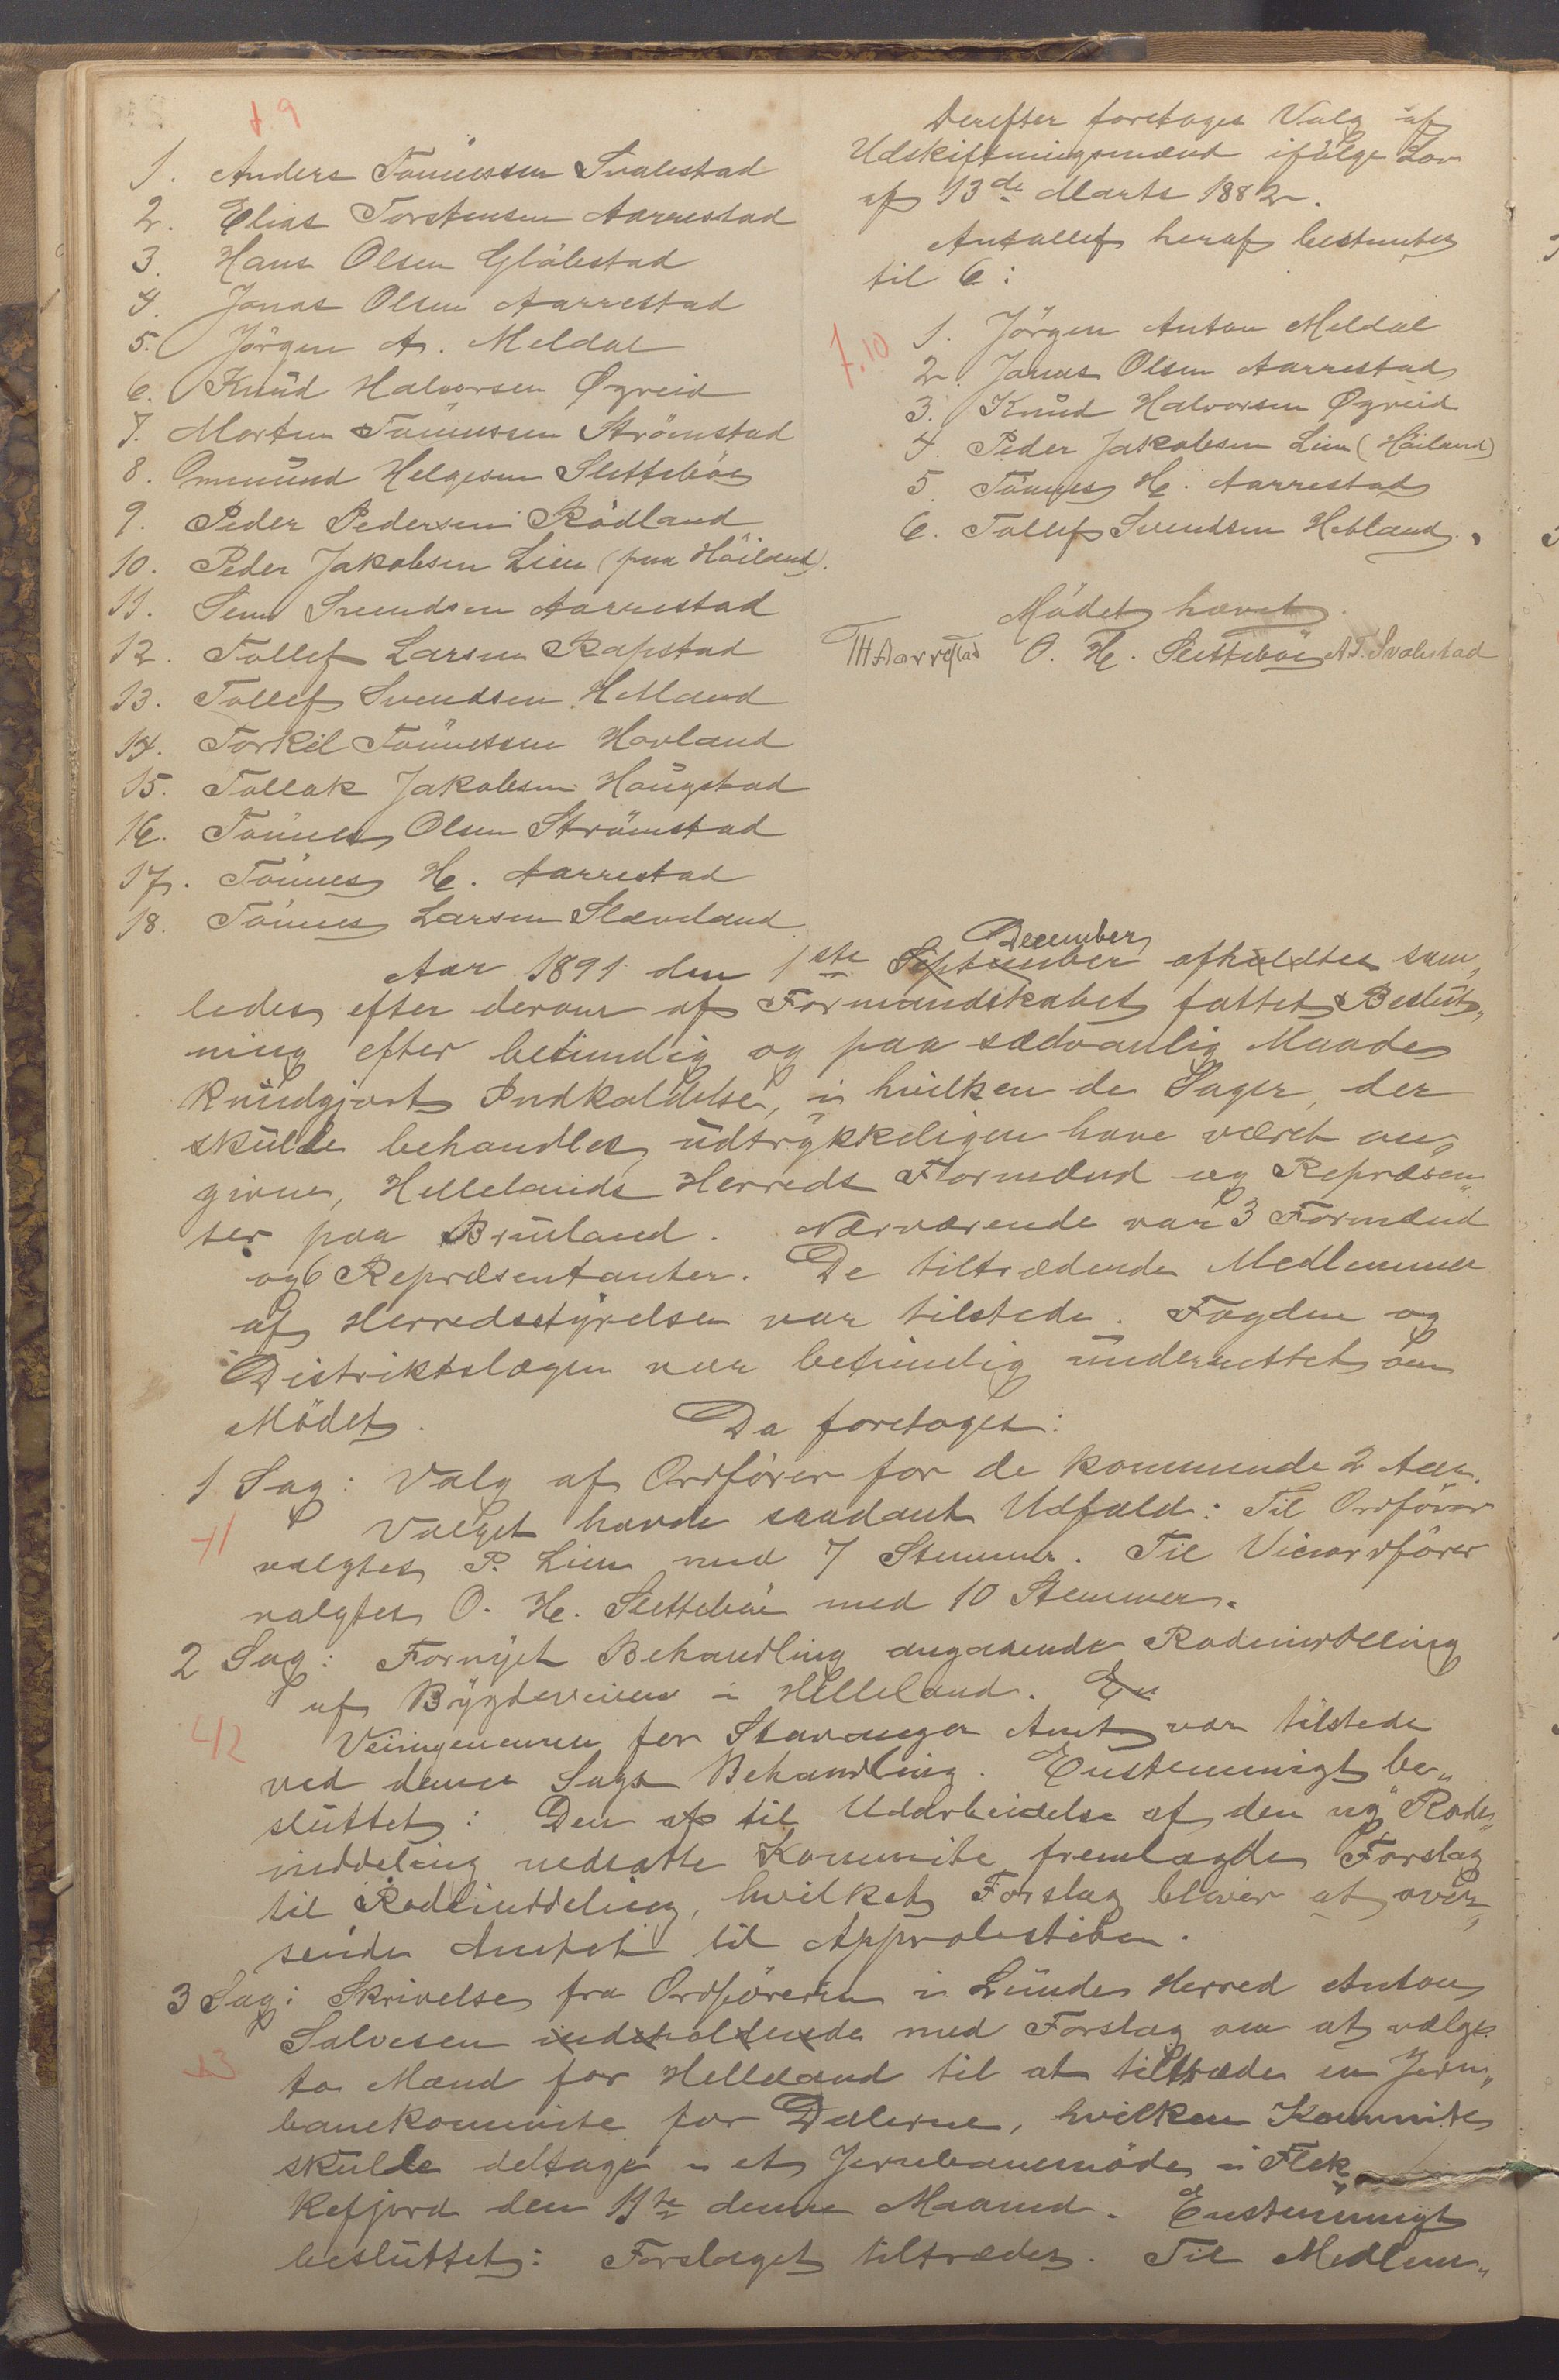 f 9
1. Anders Tönnessen Svalestad
2. Elias Torstensen Aarrestad
3. Hans Olsen Glöbstad
4. Jonas Olsen Aarrestad
5. Jörgen A. Meldal
6. Knud Halvorsen Øgreid
7. Morten Tönnessen Strömstad
8. Ommund Helgesen Sletteböe
9. Peder Pedersen Rödland
10. Peder Jakobsen Lien (paa Höiland).
11. Svend Svendsen Aarrestad
12. Tollef Larsen Rapstad
13. Tollef Svendsen Hetland
14. Torkel Tönnessen Hovland
15. Tollak Jakobsen Haugstad
16. Tönnes Olsen Strömstad
17. Tönnes H. Aarrestad
18. Tönnes Larsen Slæveland
Derefter foretoges Valg af
Udskiftningsmænd ifölge Lov
af 13de Marts 1882.
Antallet heraf bestemtes
til 6:
f. 10
1. Jörgen Anton Meldal
2. Jonas Olsen Aarrestad
3. Knud Halvorsen Øgreid
4. Peder Jakobsen Lien (Höiland)
5. Tönnes H. Aarrestad
6. Tollef Svendsen Hetland.
Mödet hævet.
TH Aarrestad O. H. Sletteböe A. T. Svalestad
December
Aar 1891 den 1ste September afholdtes sam„
ledes efter derom af Formandskabet fattet Beslut„
ning efter betimelig og paa sædvanlig Maade
kundgjort Indkaldelse, i hvilken de Sager, der
skulde behandles, udtrykkeligen have været an„
givne, Hellelands Herreds Formænd og Repræsen„
ter paa Bruland. Nærværende var 3 Formænd
og 6 Repræsentanter. De tiltrædende Medlemmer
af Herredsstyrelsen var tilstede. Fogden og
Distriktslægen var betimelig underrettet om
Mödet. Da foretoges:
1 Sag: Valg af Ordförer for de kommende 2 Aar.
11
Valget havde saadant Udfald: Til Ordförer
valgtes P. Lien med 7 Stemmer. Til Viceordförer
valgtes O. H. Sletteböe med 10 Stemmer.
2 Sag: Fornyet Behandling angaaende Rodeinddeling
af Bygdeveiene i Helleland. En
42
Veiingeniøren for Stavanger Amt var tilstede
ved denne Sags Behandling. Enstemmigt be„
sluttet: Den af til Udarbeidelse af den ny Rode„
inddeling nedsatte Kommite fremlagde Forslag
til Rodeinddeling, hvilket Forslag bliver at over„
sende Amtet til Approbation.
3 Sag: Skrivelse fra Ordföreren i Lunde Herred Anton
43
Salvesen indeholdende med Forslag om at vælge
to Mænd for Helleland til at tiltræde en Jern„
banekommite for Dalerne, hvilken Kommite
skulde deltage i et Jernbanemöde i Flek„
kefjord den 11te denne Maaned. Enstemmigt
besluttet: Forslaget tiltrædes. Til Medlem„